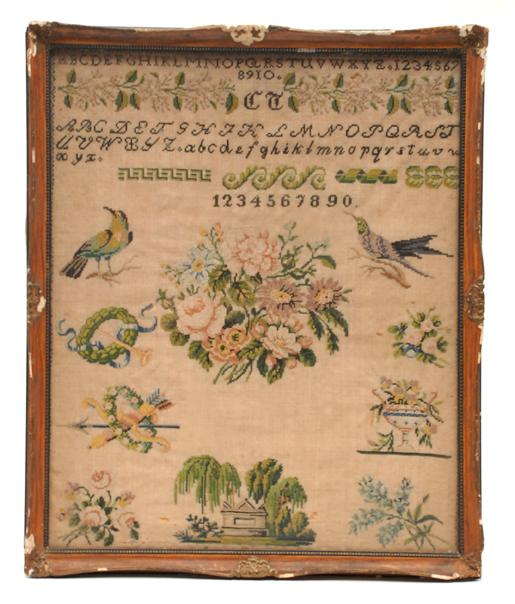 ABCDEFGHIKLMNOPQRSTUVWXYZ.1234567
8910.
CT
ABCDEFGHIKLMNOPQRST
UVWXYZ.abcdefghiklmnopqrstuvw
xyz.
1234567890.